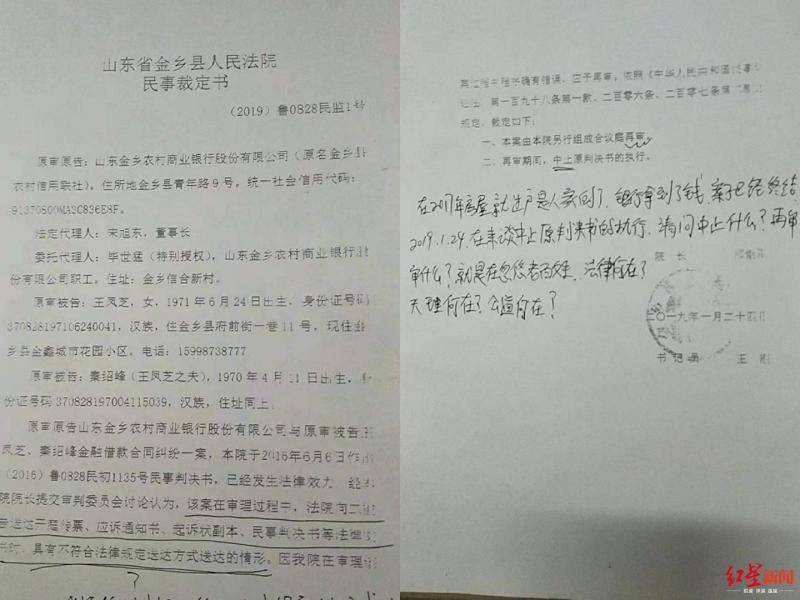 山东省金乡县人民法院
民事裁定书
(2019)鲁0828民监1号
原审原告:山东金乡农村商业银行股份有限公司(原名金乡县
农村信用联社),住所地金乡县青年路9号,统一社会信用代码:
91370800MA3C836E8F。
法定代理人:宋旭东,董事长
委托代理人:毕世猛(特别授权),山东金乡农村商业银行股
份有限公司职工。住址:金乡信合新村。
原审被告:王凤芝,女,1971年6月24日出生,身份证号码
370828197106240041,汉族,住金乡县府前街一巷11号,现住金
乡县金鑫城市花园小区。电话:15998738777
原审被告:秦绍峰(王凤芝之夫),1970年4月11日出生,
份证号码370828197004115039,汉族,住址同上。
原审原告山东金乡农村商业银行股份有限公司与原审被告王
凤芝、秦绍峰金融借款合同纠纷一案,本院于2016年6月6日作出
(2016)鲁0828民初1135号民事判决书,已经发生法律效力。经本
院院长提交审判委员会讨论认为,该案在审理过程中,法院向二被
告送达开庭传票、应诉通知书、起诉状副本、民事判决书等法律文
书时,具有不符合法律规定送达方式送达的情形。因我院在审理
?
案过程中程序确有错误,应予再审。依照《中华人民共和国民事
讼法》第一百九十八条第一款、二百零六条、二百零七条第
规定,裁定如下:
一、本案由本院另行组成合议庭再审
二、再审期间,中止原判决书的执行。
在2017年房屋就过户是人家的了,银行拿到了钱,案子已经终结
2019.1.24在来谈中止原判决书的执行,请问中止什么?再审
审什么?就是在忽悠老百姓,法律何在?
天理何在?公道何在?
院长
二〇一九年一月二十四日
书记员 王
红星新闻